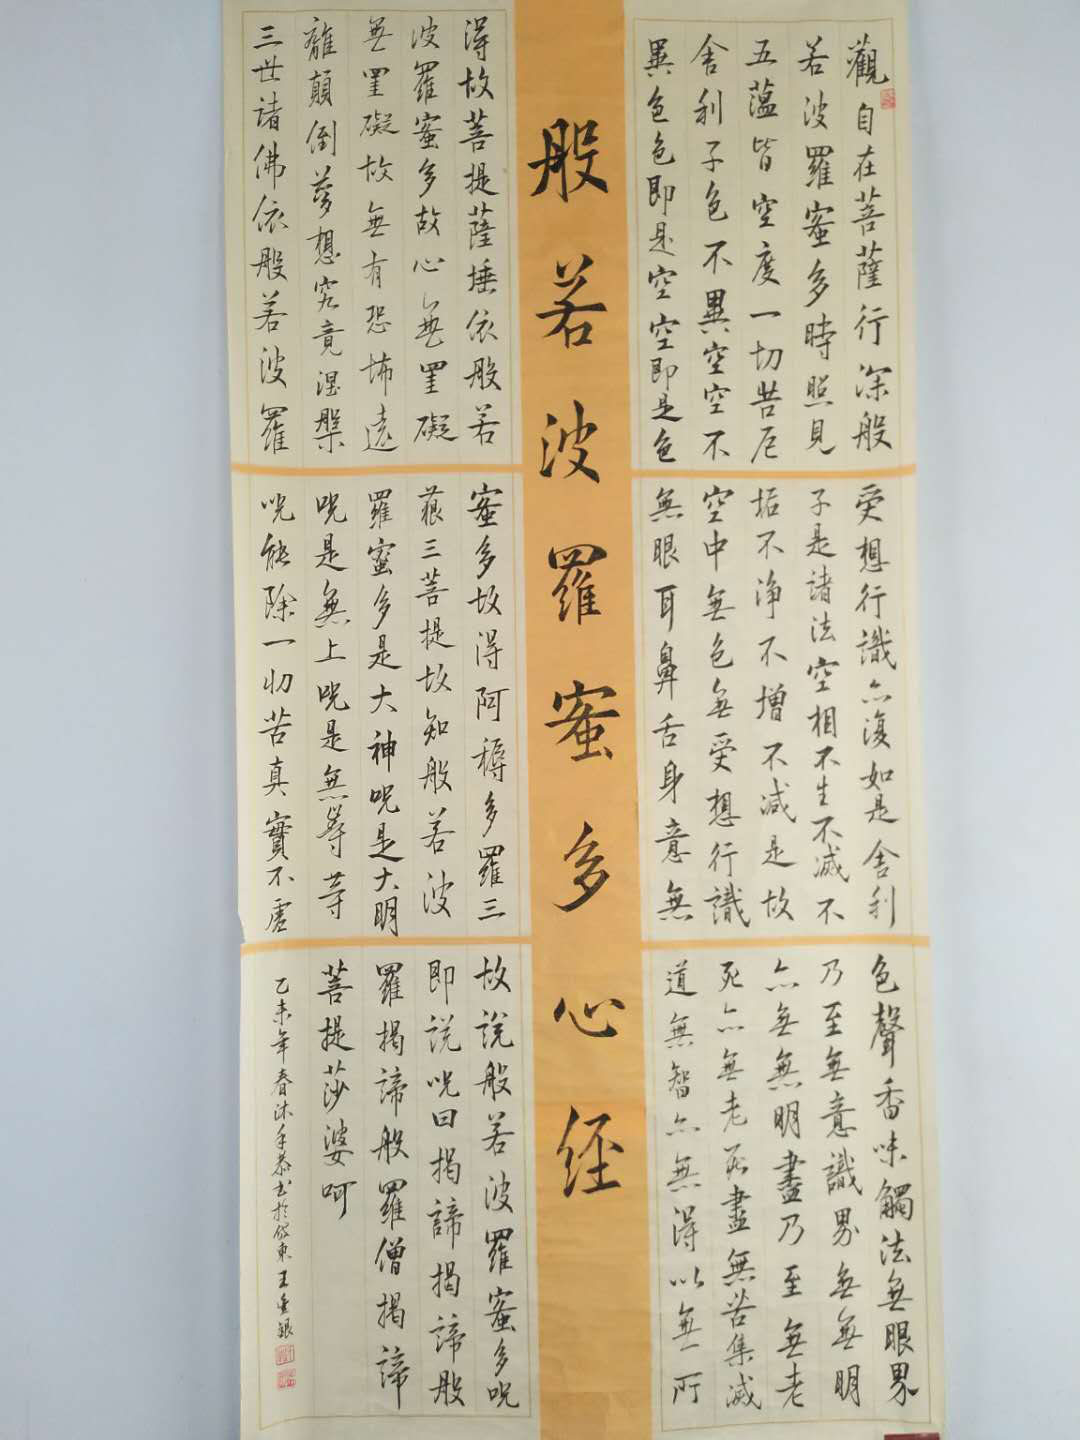 般若波羅蜜多心经
觀自在菩薩行深般
若波羅蜜多時照見
五蕴皆空度一切苦厄
舍利子色不異空空不
異色色即是空空即是色
受想行識亦復如是舍利
子是諸法空相不生不滅不
垢不淨不增不減是故
空中無色無受想行識
無眼耳鼻舌身意無
色聲香味觸法無眼界
乃至無意識界無無明
亦無無明盡乃至無老
死亦無老死盡無苦集滅
道無智亦無得以無所
得故菩提薩埵依般若
波羅蜜多故心無罣礙
無罣礙故無有恐怖遠
離顛倒夢想究竟涅槃
三世諸佛依般若波羅
蜜多故得阿耨多羅三
藐三菩提故知般若波
羅蜜多是大神呪是大明
呪是無上呪是無等等
呪能除一切苦真實不虛
故説般若波羅蜜多呪
即説呪曰揭諦揭諦般
羅揭諦般羅僧揭諦
菩提莎婆呵
乙未年春沐手恭书於岱東王重銀